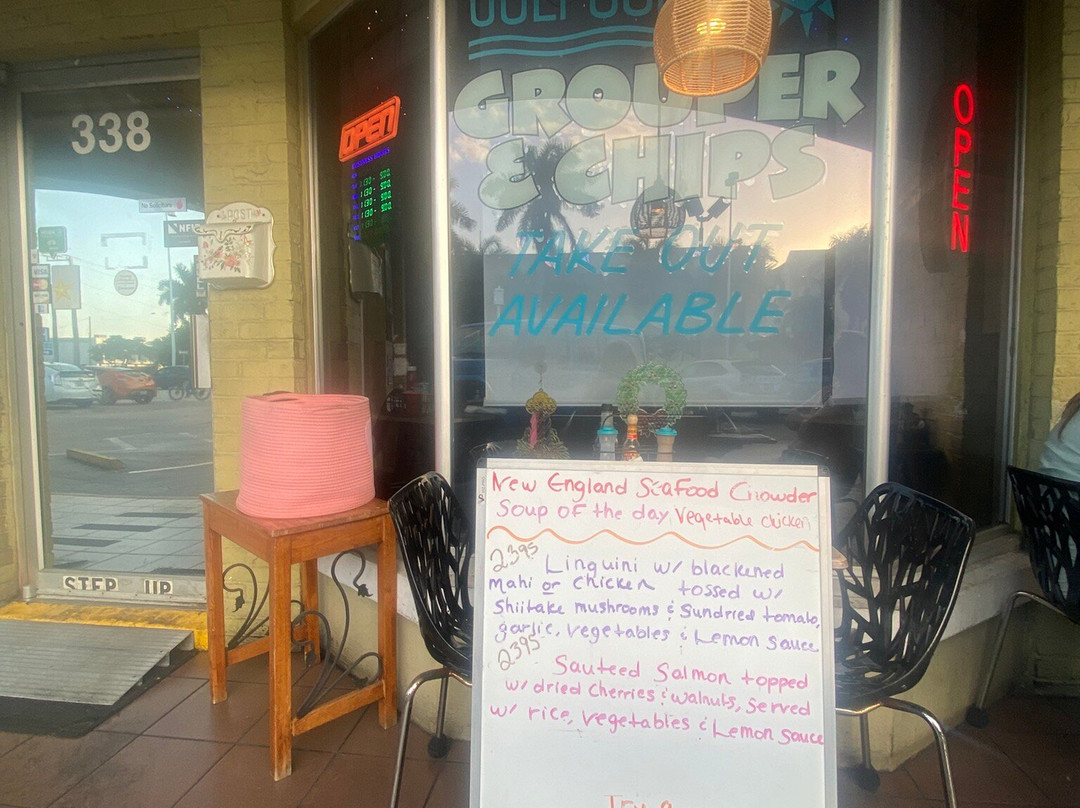 GROUPER
& CHIPS
TAKE OUT
AVAILABLE
338
OPEN
OPEN
No Soliciting
POST
STEP UP
New England Seafood Chowder
Soup of the day Vegetable chicken
2395 Linguini w/ blackened
mahi or chicken tossed w/
shiitake mushrooms & sundried tomato,
garlic, vegetables & Lemon sauce
2395 Sauteed Salmon topped
w/ dried cherries & walnuts, served
w/ rice, vegetables & Lemon sauce